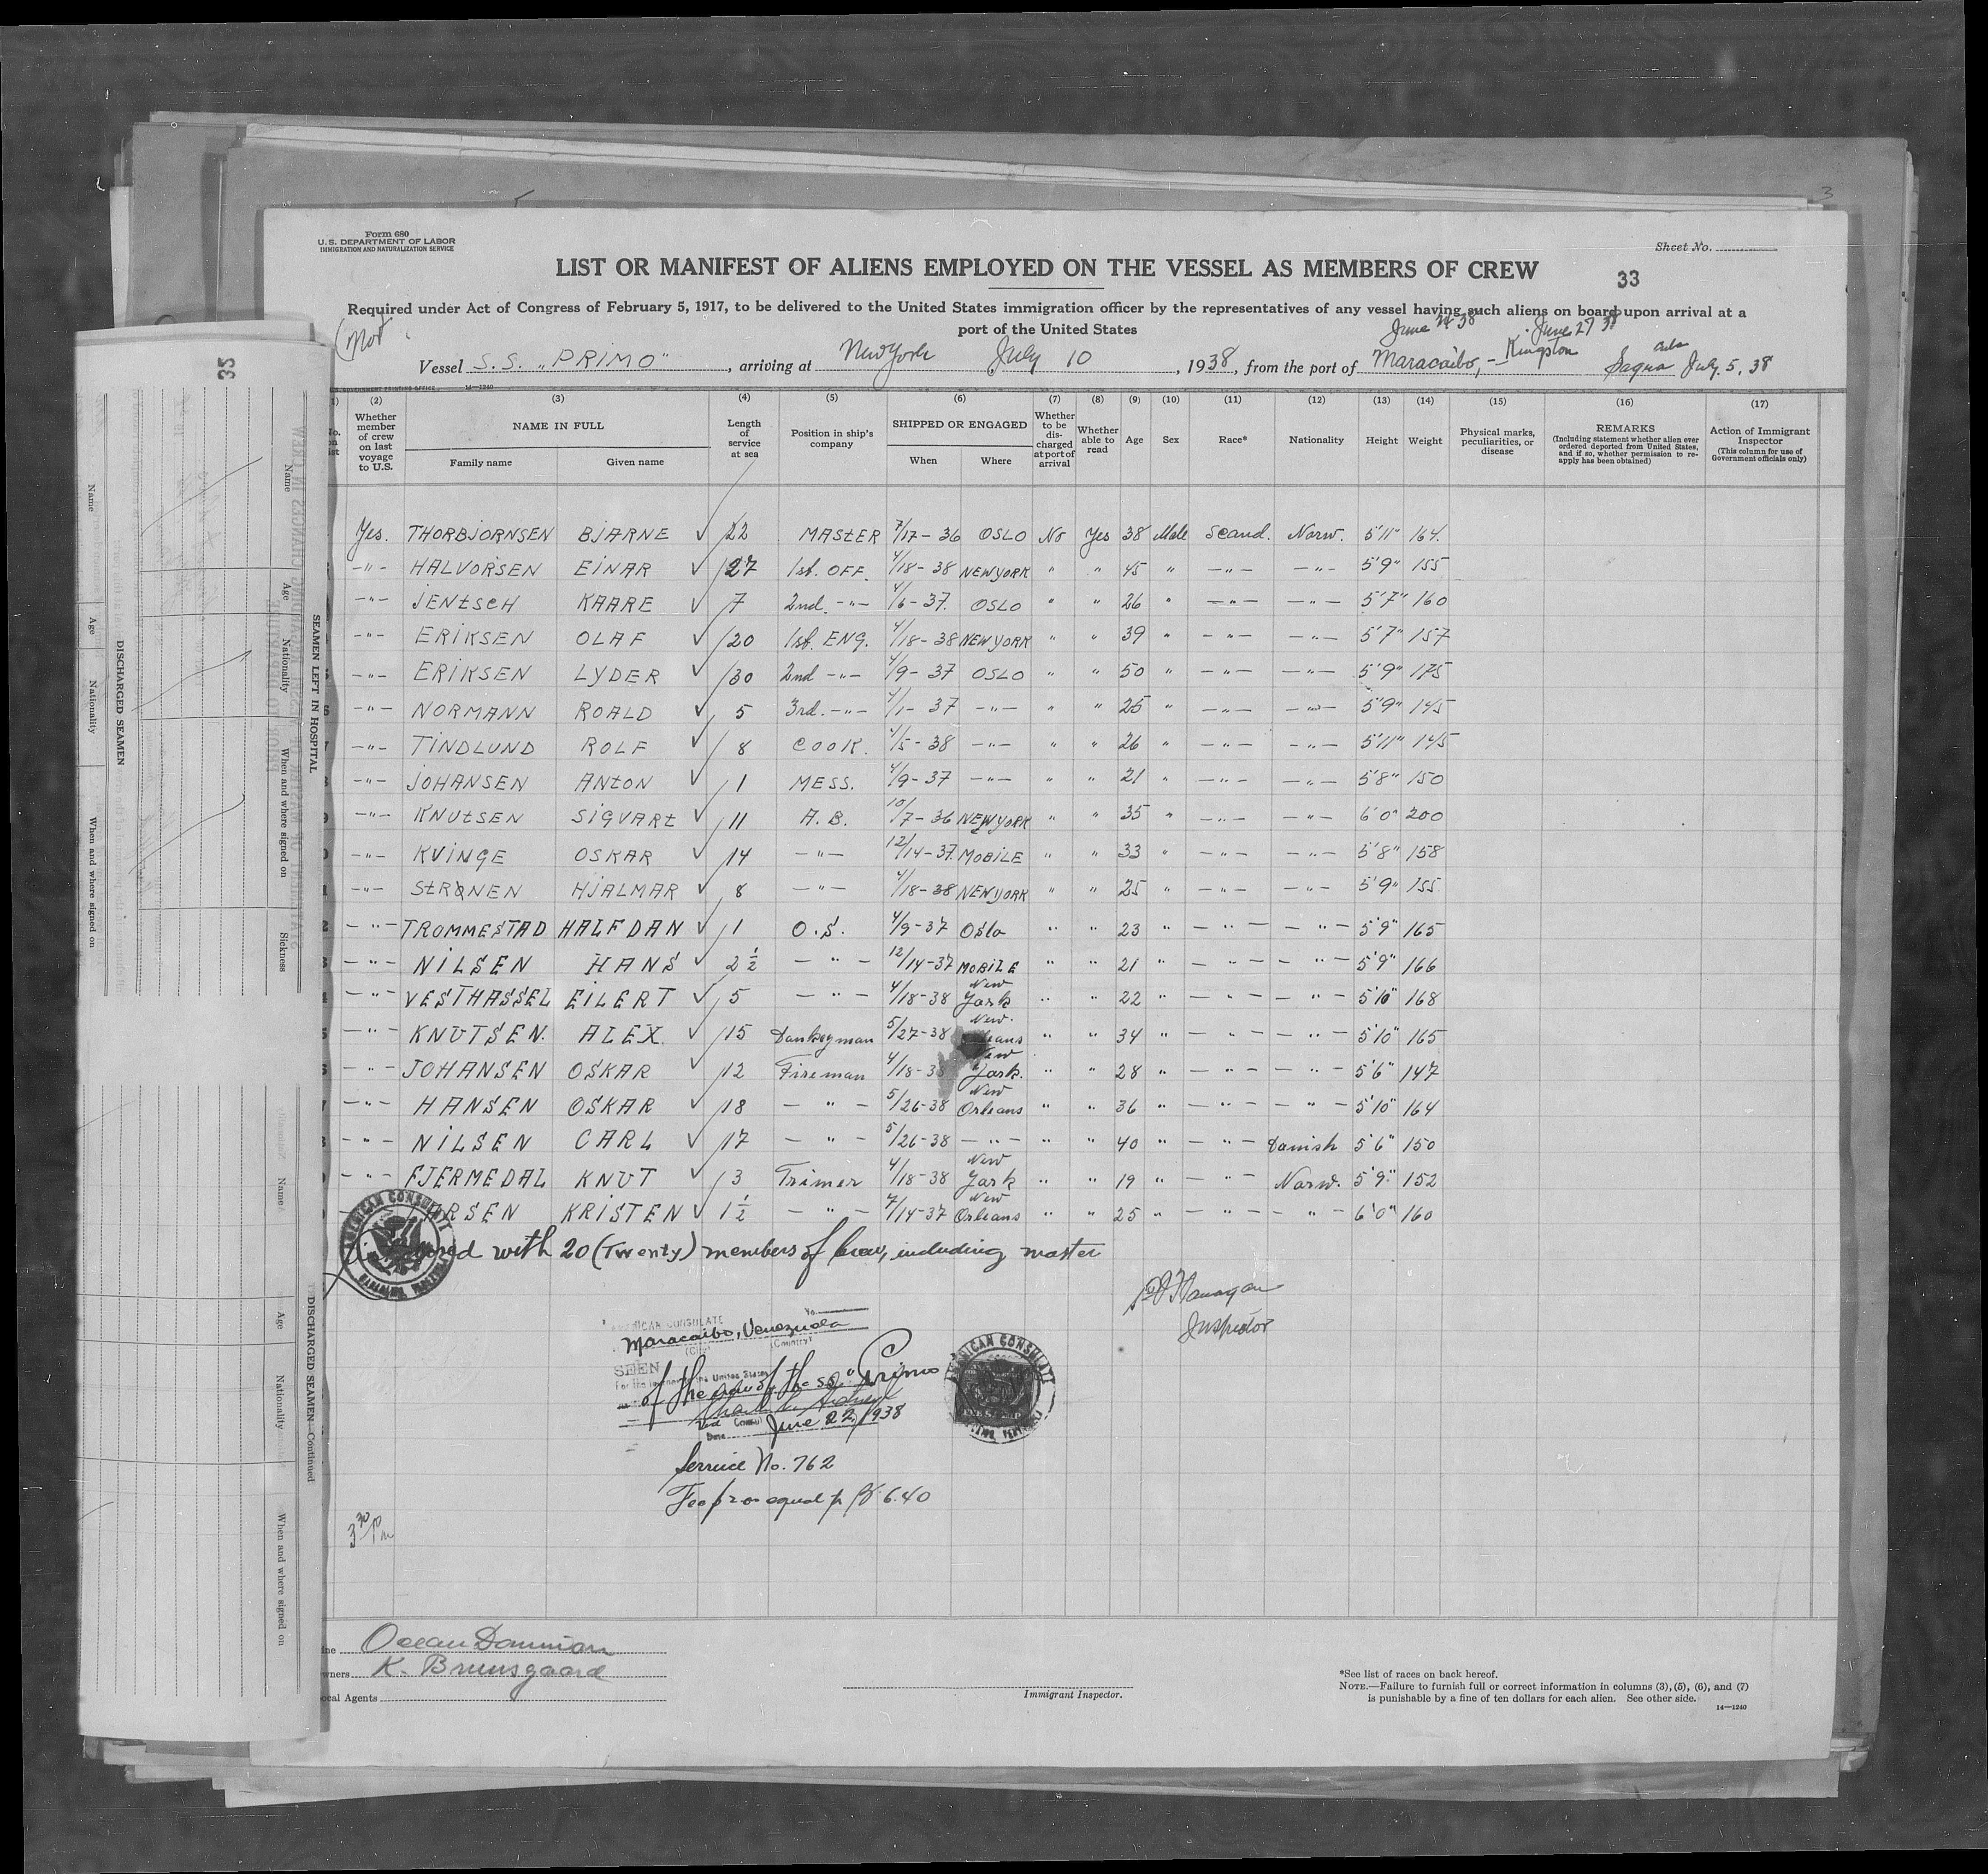 Form 680
U. S. DEPARTMENT OF LABOR
IMMIGRATION AND NATURALIZATION SERVICE
Sheet No.
LIST OR MANIFEST OF ALIENS EMPLOYED ON THE VESSEL AS MEMBERS OF CREW
33
Required under Act of Congress of February 5, 1917, to be delivered to the United States immigration officer by the representatives of any vessel having such aliens on board upon arrival at a
port of the United States
(Nor
June 24 38 June 27 38
Vessel S.S. „PRIMO" , arriving at New York July 10 , 1938, from the port of Maracaibo, – Kingston Sagua July. 5, 38
14—1240
(2) (3) (4) (5) (6) (7) (8) (9) (10) (11) (12) (13) (14) (15) (16) (17)
Whether member of crew on last voyage to U.S. NAME IN FULL Family name Given name Length of service at sea Position in ship's company SHIPPED OR ENGAGED When Where Whether to be discharged at port of arrival Whether able to read Age Sex Race* Nationality Height Weight Physical marks, peculiarities, or disease REMARKS (Including statement whether alien ever ordered deported from United States, and if so, whether permission to reapply has been obtained) Action of Immigrant Inspector (This column for use of Government officials only)
Yes. THORBJORNSEN BJARNE √ 22 MASTER 7/17-36 OSLO No Yes 38 Male Scand. Norw. 5'11" 164.
-"- HALVORSEN EINAR √ 27 1st. OFF. 4/18-38 NEWYORK " " 45 " -"- -"- 5'9" 155
-"- JENTSCH KAARE √ 7 2nd. -"- 4/6-37. OSLO " " 26 " -"- -"- 5'7" 160
-"- ERIKSEN OLAF √ 20 1st. ENG. 4/18-38 NEWYORK " " 39 " -"- -"- 5'7" 157
-"- ERIKSEN LYDER √ 30 2nd -"- 4/9-37 OSLO " " 50 " -"- -"- 5'9" 175
-"- NORMANN ROALD √ 5 3rd. -"- 4/1-37 -"- " " 25 " -"- -"- 5'9" 145
-"- TINDLUND ROLF √ 8 COOK. 4/5-38 -"- " " 26 " -"- -"- 5'11" 145
-"- JOHANSEN ANTON √ 1 MESS. 4/9-37 -"- " " 21 " -"- -"- 5'8" 150
-"- KNUTSEN SIGVART √ 11 A.B. 10/7-36 NEWYORK " " 35 " -"- -"- 6'0" 200
-"- KVINGE OSKAR √ 14 -"- 12/14-37. MOBILE " " 33 " -"- -"- 5'8" 158
-"- STRØNEN HJALMAR √ 8 -"- 4/18-38 NEWYORK " " 25 " -"- -"- 5'9" 155
-"- TROMMESTAD HALFDAN √ 1 O.S. 4/9-37 Oslo " " 23 " -"- -"- 5'9" 165
-"- NILSEN HANS √ 2½ -"- 12/14-37 MOBILE " " 21 " -"- -"- 5'9" 166
-"- VESTHASSEL EILERT √ 5 -"- 4/18-38 New York " " 22 " -"- -"- 5'10" 168
-"- KNUTSEN. ALEX. √ 15 Donkeyman 5/27-38 New. Orleans " " 34 " -"- -"- 5'10" 165
-"- JOHANSEN OSKAR √ 12 Fireman 4/18-38 New York. " " 28 " -"- -"- 5'6" 147
-"- HANSEN OSKAR √ 18 -"- 5/26-38 New Orleans " " 36 " -"- -"- 5'10" 164
-"- NILSEN CARL √ 17 -"- 5/26-38 -"- " " 40 " -"- Danish 5'6" 150
-"- FJERMEDAL KNUT √ 3 Trimer 4/18-38 New York " " 19 " -"- Norw. 5'9" 152
ARSEN KRISTEN √ 1½ -"- 7/14-37 New Orleans " " 25 " -"- -"- 6'0" 160
with 20 (Twenty) members of crew, including master
AMERICAN CONSULATE
Inspector
AMERICAN CONSULATE
Maracaibo, Venezuela
(City) (Country)
SEEN
of the crew of the SS "Primo
Consul
Date June 22, 1938
AMERICAN CONSULATE
Service No. 762
Fee $2.00 equal to Bs 6.40
3 30 Pm
Line Ocean Dominion
Owners K. Bruusgaard
Local Agents
Immigrant Inspector.
*See list of races on back hereof.
NOTE.—Failure to furnish full or correct information in columns (3), (5), (6), and (7)
is punishable by a fine of ten dollars for each alien. See other side.
14—1240
33
SEAMEN LEFT IN HOSPITAL
Name Age Nationality When and where signed on Sickness
DISCHARGED SEAMEN
Name Age Nationality When and where signed on
DISCHARGED SEAMEN—Continued
Name Age Nationality When and where signed on